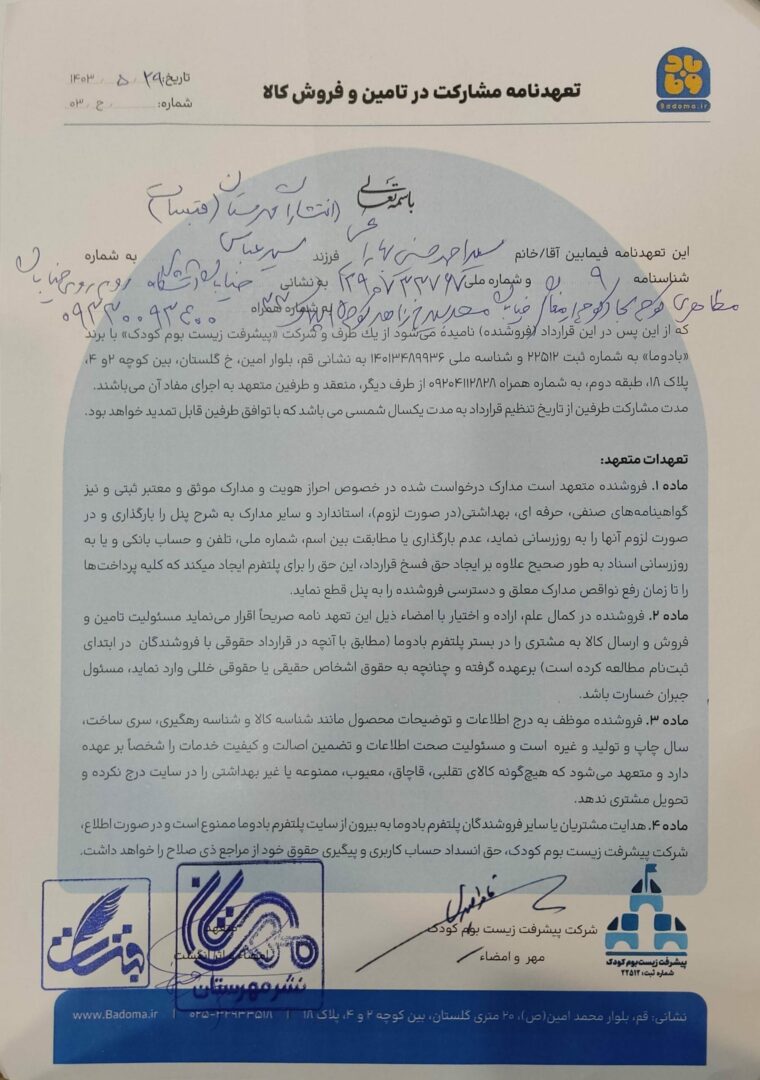 بادوما
Badoma.ir
تعهدنامه مشارکت در تامین و فروش کالا
تاریخ: ۲۹ / ۵ / ۱۴۰۳
شماره: / ج / ۰۳
باسمه تعالی
انتشارات مهرستان (
این تعهدنامه فیمابین آقا/خانم سید احمد حسنی فرزند سید عباس به شماره
شناسنامه ۹ و شماره ملی به نشانی خیابان دانشگاه روبروی خیابان
به شماره همراه ۰۹۳۳۰۰۹۳۶۰۰
که از این پس در این قرارداد (فروشنده) نامیده می‌شود از یك طرف و شرکت «پیشرفت زیست بوم کودک» با برند
«بادوما» به شماره ثبت ۲۲۵۱۲ و شناسه ملی ۱۴۰۱۳۴۸۹۹۳۶ به نشانی قم، بلوار امین، خ گلستان، بین کوچه ۲و ۴،
پلاک ۱۸، طبقه دوم، به شماره همراه ۰۹۲۰۴۱۱۲۸۲۸ از طرف دیگر، منعقد و طرفین متعهد به اجرای مفاد آن می‌باشند.
مدت مشارکت طرفین از تاریخ تنظیم قرارداد به مدت یکسال شمسی می باشد که با توافق طرفین قابل تمدید خواهد بود.
تعهدات متعهد:
ماده ۱. فروشنده متعهد است مدارک درخواست شده در خصوص احراز هویت و مدارک موثق و معتبر ثبتی و نیز
گواهینامه‌های صنفی، حرفه ای، بهداشتی(در صورت لزوم)، استاندارد و سایر مدارک به شرح پنل را بارگذاری و در
صورت لزوم آنها را به روزرسانی نماید، عدم بارگذاری یا مطابقت بین اسم، شماره ملی، تلفن و حساب بانکی و یا به
روزرسانی اسناد به طور صحیح علاوه بر ایجاد حق فسخ قرارداد، این حق را برای پلتفرم ایجاد میکند که کلیه پرداخت‌ها
را تا زمان رفع نواقص مدارک معلق و دسترسی فروشنده را به پنل قطع نماید.
ماده ۲. فروشنده در کمال علم، اراده و اختیار با امضاء ذیل این تعهد نامه صریحاً اقرار می‌نماید مسئولیت تامین و
فروش و ارسال کالا به مشتری را در بستر پلتفرم بادوما (مطابق با آنچه در قرارداد حقوقی با فروشندگان در ابتدای
ثبت‌نام مطالعه کرده است) برعهده گرفته و چنانچه به حقوق اشخاص حقیقی یا حقوقی خللی وارد نماید، مسئول
جبران خسارت باشد.
ماده ۳. فروشنده موظف به درج اطلاعات و توضیحات محصول مانند شناسه کالا و شناسه رهگیری، سری ساخت،
سال چاپ و تولید و غیره است و مسئولیت صحت اطلاعات و تضمین اصالت و کیفیت خدمات را شخصاً بر عهده
دارد و متعهد می‌شود که هیچ‌گونه کالای تقلبی، قاچاق، معیوب، ممنوعه یا غیر بهداشتی را در سایت درج نکرده و
تحویل مشتری ندهد.
ماده ۴. هدایت مشتریان یا سایر فروشندگان پلتفرم بادوما به بیرون از سایت پلتفرم بادوما ممنوع است و در صورت اطلاع،
شرکت پیشرفت زیست بوم کودک، حق انسداد حساب کاربری و پیگیری حقوق خود از مراجع ذی صلاح را خواهد داشت.
شرکت پیشرفت زیست بوم کودک
مهر و امضاء
پیشرفت زیست بوم کودک
شماره ثبت: ۲۲۵۱۲
متعهد
امضاء و اثر انگشت
مهرستان
نشر مهرستان
نشانی: قم، بلوار محمد امین(ص)، ۲۰ متری گلستان، بین کوچه ۲ و ۴، پلاک ۱۸ | ۰۲۵-۳۲۹۳۳۵۱۸ | www.Badoma.ir